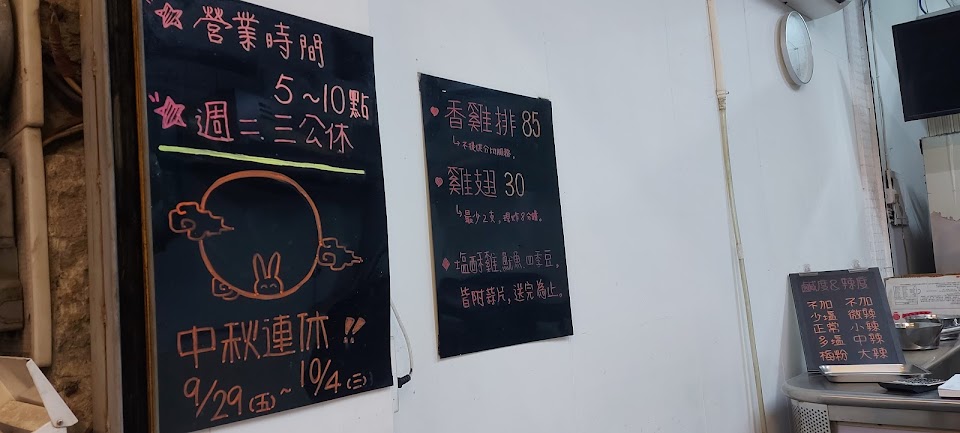 營業時間
5~10點
週二.三公休
中秋連休!!
9/29(五)~10/4(三)
香雞排 85
不提供分切服務。
雞翅 30
最少2支,現炸8分鐘。
塩酥雞、魷魚、四季豆,
皆附蒜片,送完為止。
鹹度&辣度
不加 不加
少塩 微辣
正常 小辣
多塩 中辣
梅粉 大辣